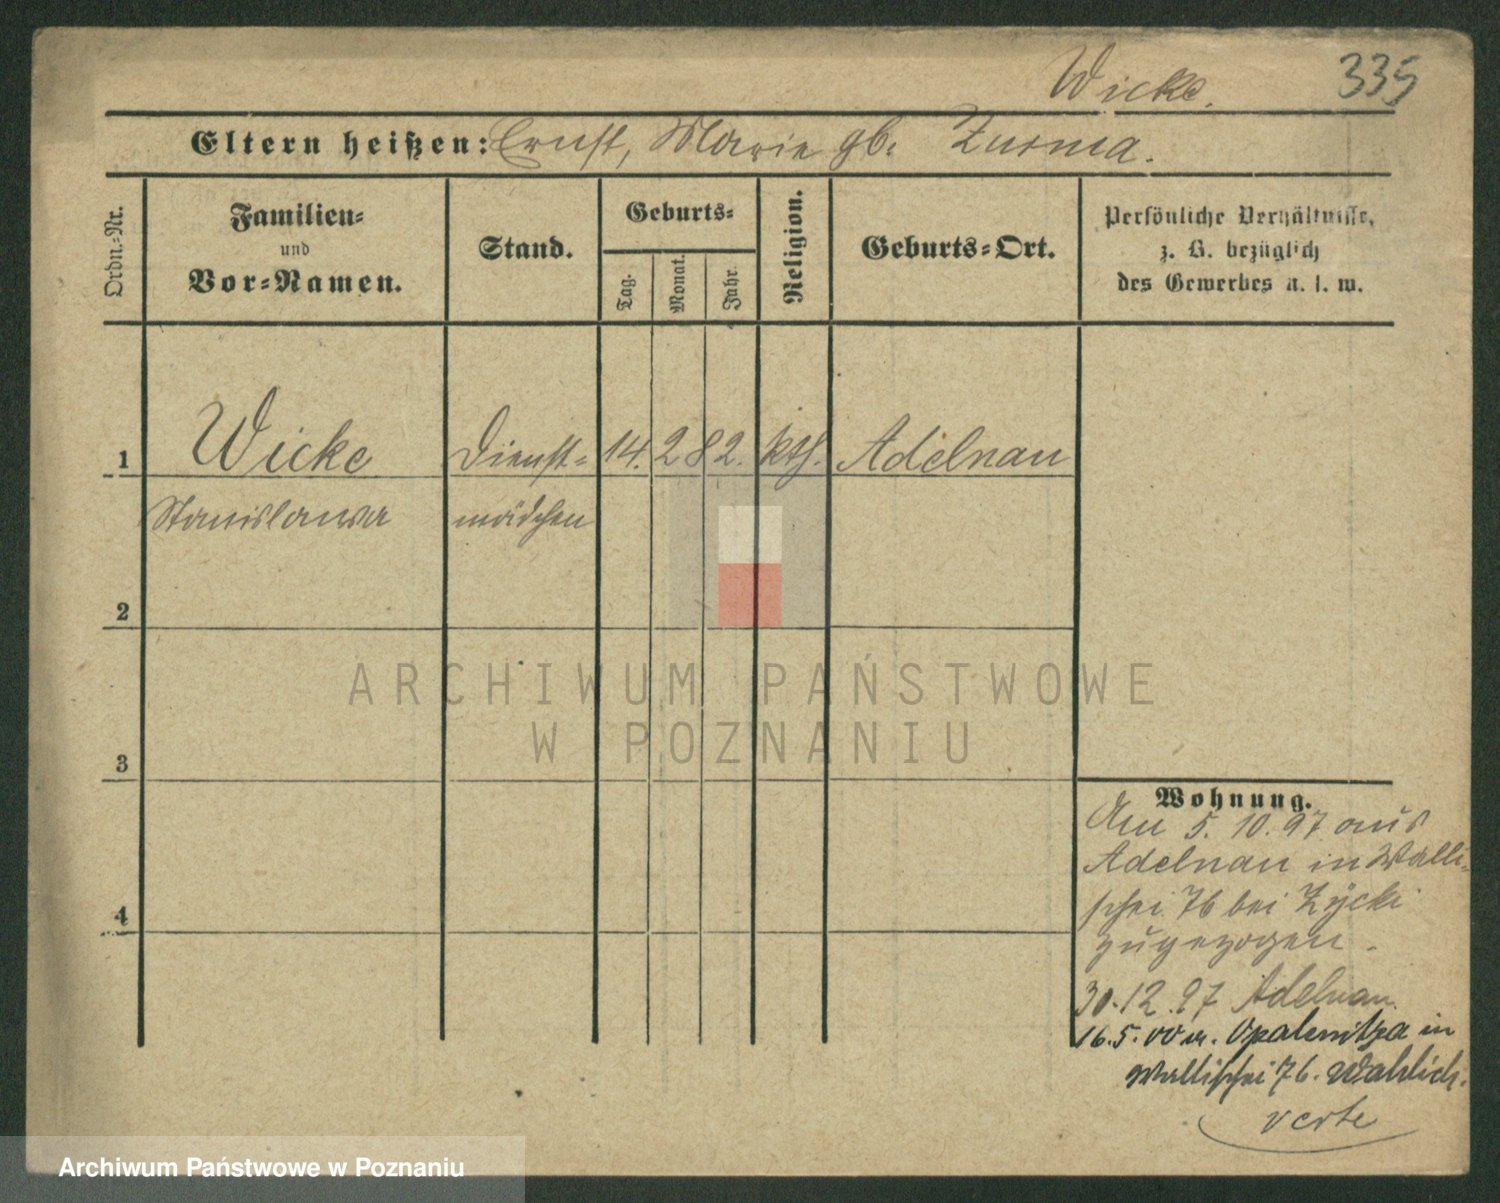 Wicke. 335
Eltern heißen: Ernst, Marie gb. Zurma.
Ordn.-Nr.
Familien-
und
Vor-Namen.
Stand.
Geburts-
Tag.
Monat.
Jahr
Religion.
Geburts-Ort.
Persönliche Verhältnisse,
z. B. bezüglich
des Gewerbes u. s. w.
1 Wicke Dienst- 14. 2 82. kth. Adelnau
Stanislawa mädchen
2
3
4
Wohnung.
Am 5. 10. 97 aus
Adelnau in Walli-
schei 76 bei Zÿcki
zugezogen.
30.12.97 Adelnau.
16.5.00 v. Opalenitza in
Wallischei 76. Wahlich.
verte
ARCHIWUM PAŃSTWOWE
W POZNANIU
Archiwum Państwowe w Poznaniu